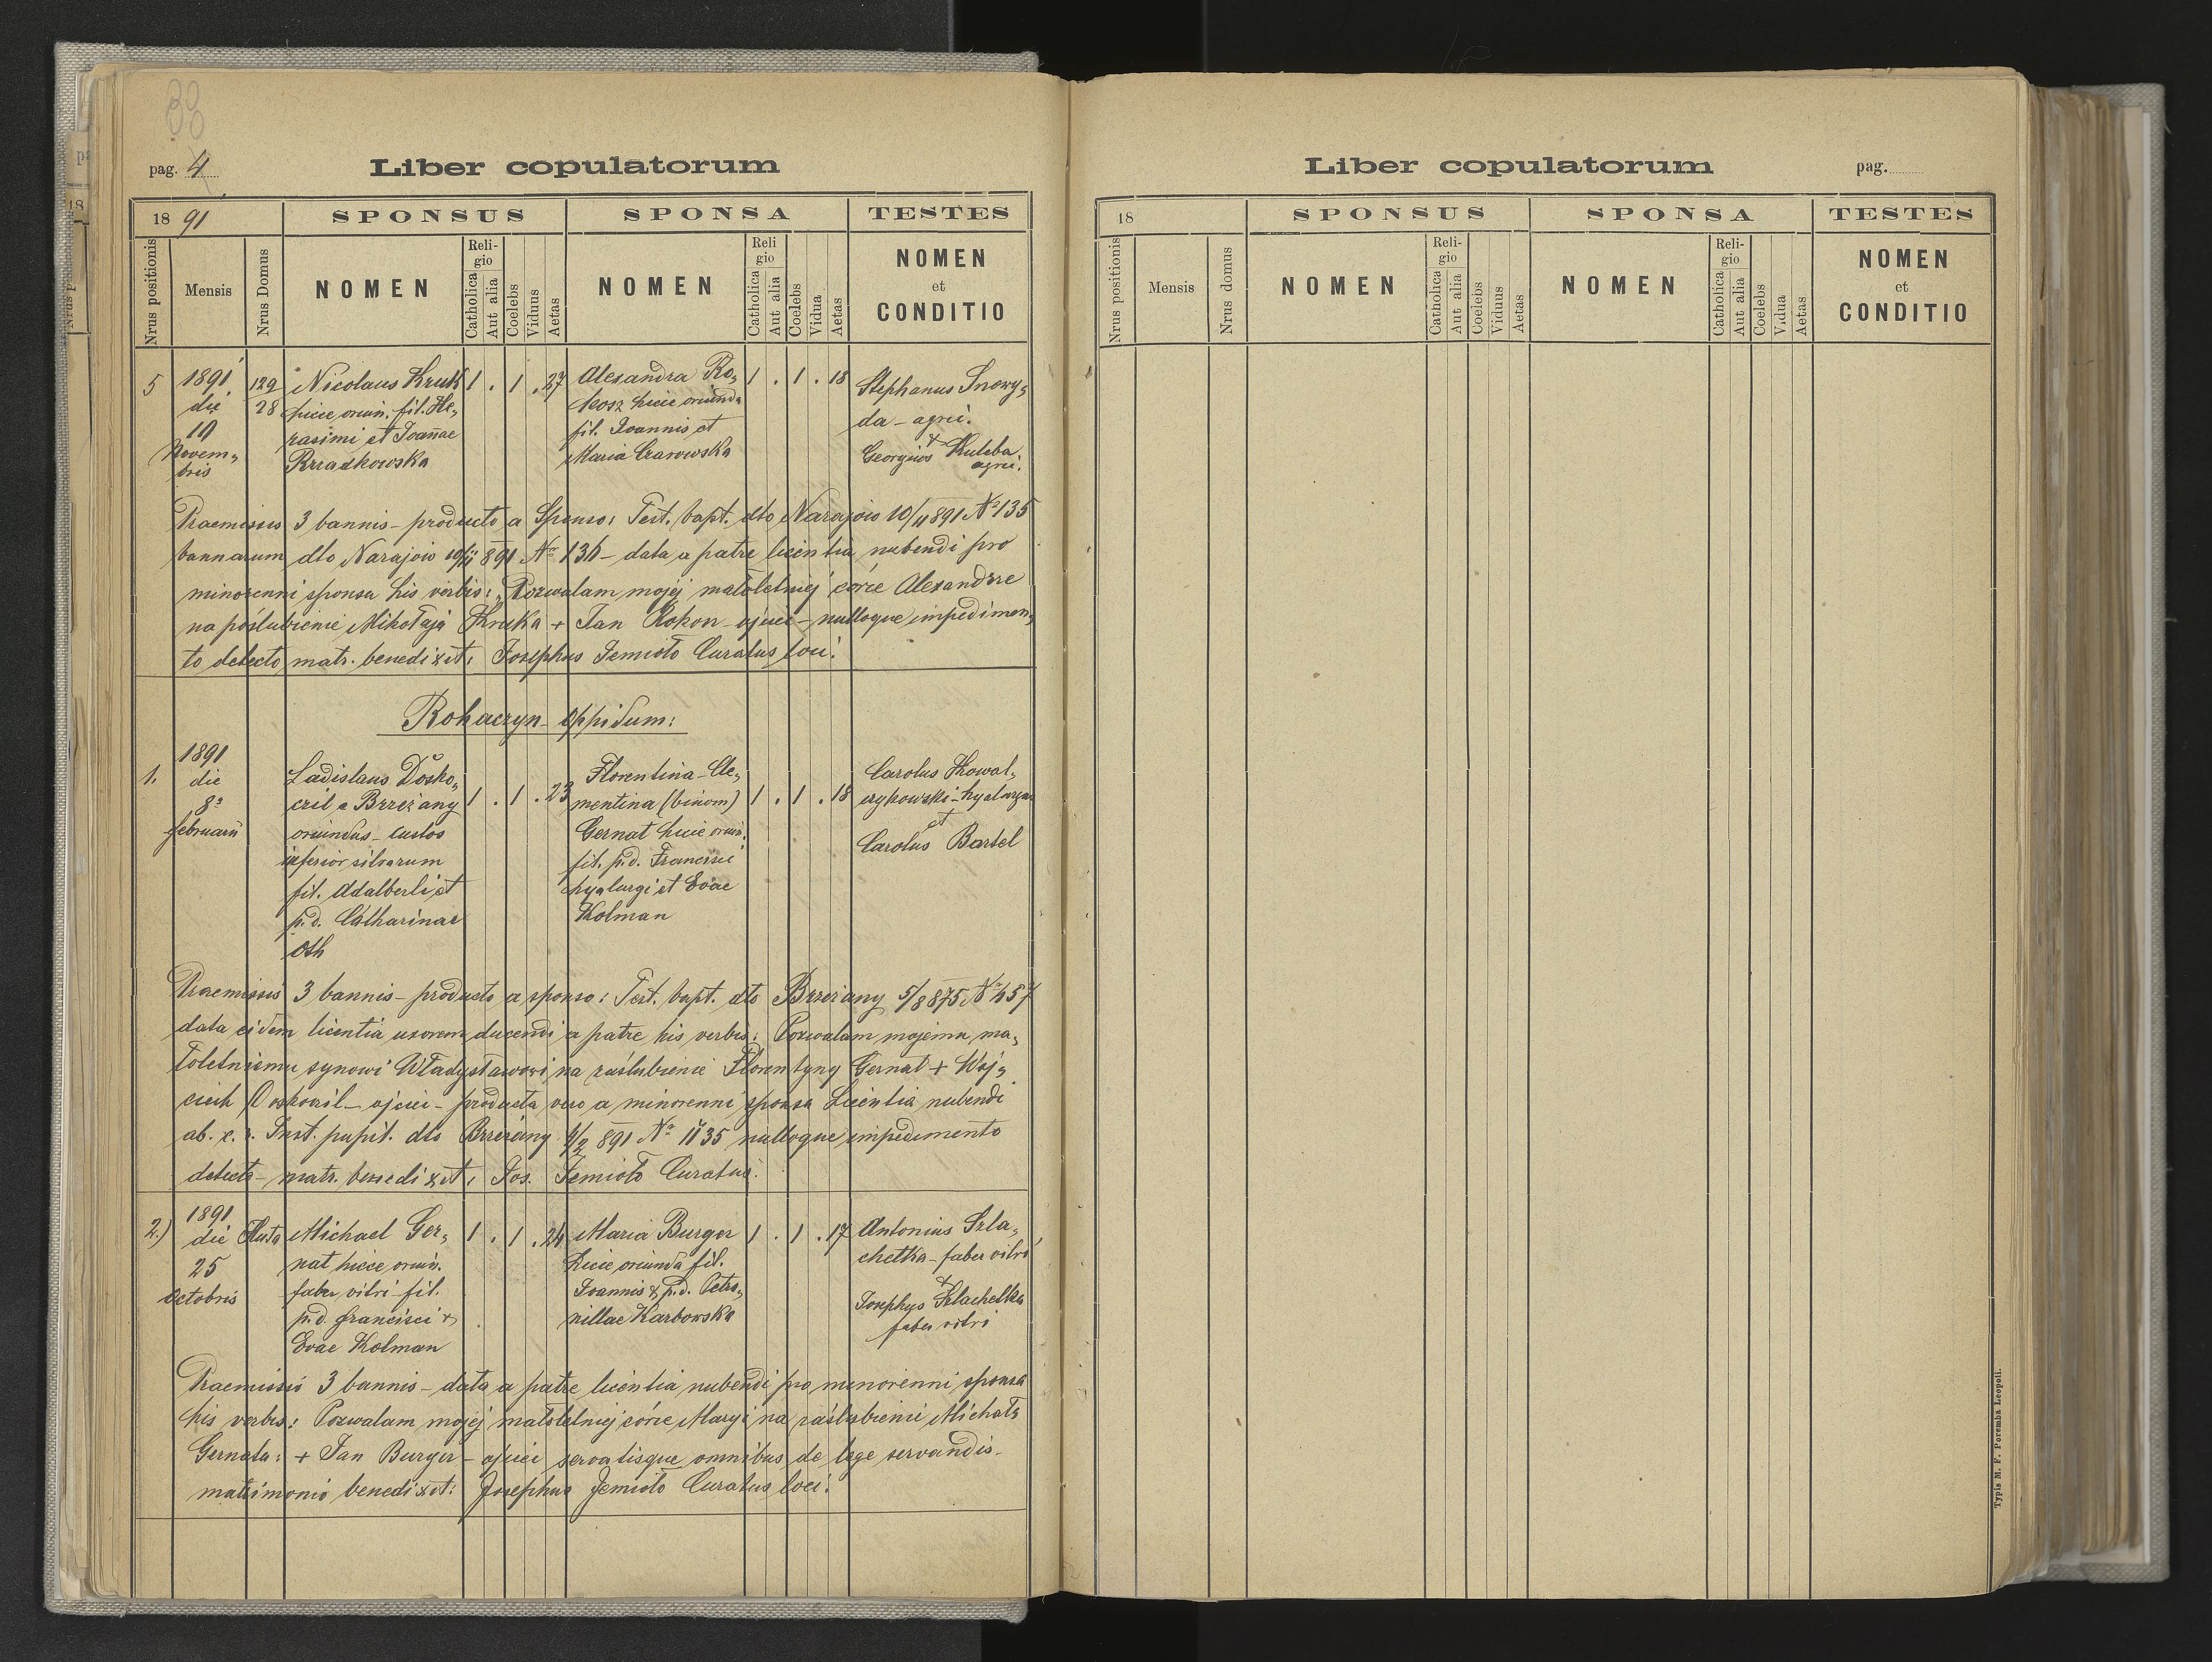 pag. 4
Liber copulatorum
18 91
SPONSUS
SPONSA
TESTES
Nrus positionis
Mensis
Nrus Domus
NOMEN
Religio
Catholica
Aut alia
Coelebs
Viduus
Aetas
NOMEN
Religio
Catholica
Aut alia
Coelebs
Vidua
Aetas
NOMEN
et
CONDITIO
5
1891
die
10
Novem„
bris
129
28
Nicolaus Kruk
hicce oriun. fil. He„
rasimi et Joannae
1 . 1 . 27
Alexandra Ro„
hicce oriunda
fil. Joannis et
Maria Czarowska
1 . 1 . 18
Stephanus Snowy„
da - agric.
&
Georgius Kuleba
agric.
Praemissis 3 bannis - producto a Sponso: Test. bapt. dto Narajow 10/11 891 No 135
bannarum dto Narajow 10/11 891 No 136 - data a patre licentia nubendi pro
minorenni sponsa his verbis: „Pozwalam mojej małoletniej córce Alexandrze
na poślubienie Mikołaja Kruka + Jan Rokon - ojciec - nulloque impedimen„
to detecto matr. benedixit: Josephus Jemioło Curatus loci.
Rohaczyn - Oppidum:
1.
1891
die
8a
februarii
Ladislaus Dosko„
czil e Brzeżany
oriundus - custos
inferior silvarum
fil. Adalberti et
p.d. Catharinae
Oth
1 . 1 . 23
Florentina - Cle„
mentina (binom)
Gernat hicce oriun.
fil. p.d. Francisci
hyalurgi et Evae
Kolman
1 . 1 . 18
Carolus Kowal„
czykowski - hyalurgus
et
Carolus Bartel
Praemissis 3 bannis - producto a sponso: Test. bapt. dto Brzeżany 5/8 875 No 457
data eidem licentia uxorem ducendi a patre his verbis: Pozwalam mojemu ma„
łoletniemu synowi Władysławowi na zaślubienie Florentyny Gernat + Woj„
ciech Doskoczil - ojciec - producta vero a minorenni sponsa Licentia nubendi
ab. c. r. Inst. pupil. dto Brzeżany 4/2 891 No 1135 nulloque impedimento
detecto - matr. benedixit: Jos. Jemioło Curatus.
2.)
1891
die
25
Octobris
Huta
Michael Ger„
nat hicce oriun.
faber vitri - fil.
p.d. Francisci &
Evae Kolman
1 . 1 . 24
Maria Burger
hicce oriunda fil.
Joannis & p.d. Petro„
nillae Karbowska
1 . 1 . 17
Antonius Szla„
chetka - faber vitri
&
Josephus Szlachetka
faber vitri
Praemissis 3 bannis - data a patre licentia nubendi pro minorenni sponsa
his verbis: Pozwalam mojej małoletniej córce Maryi na zaślubienie Michała
Gernata: + Jan Burger - ojciec servatisque omnibus de lege servandis -
matrimonio benedixit: Josephus Jemioło Curatus loci.
Liber copulatorum
pag.
18
SPONSUS
SPONSA
TESTES
Nrus positionis
Mensis
Nrus domus
NOMEN
Religio
Catholica
Aut alia
Coelebs
Viduus
Aetas
NOMEN
Religio
Catholica
Aut alia
Coelebs
Vidua
Aetas
NOMEN
et
CONDITIO
Typis M. F. Poremba Leopoli.